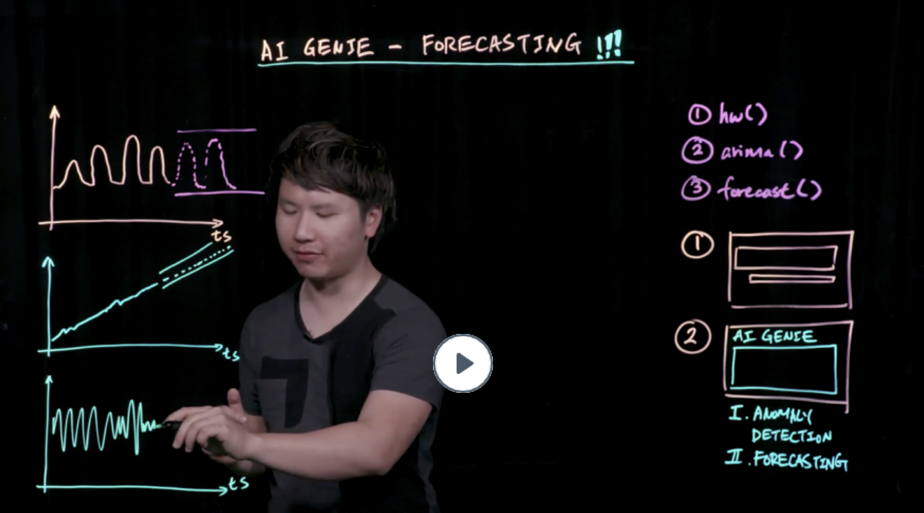 AI GENIE - FORECASTING !!!
ts
ts
ts
① hw()
② arima()
③ forecast()
①
②
AI GENIE
I. ANOMALY
DETECTION
II. FORECASTING